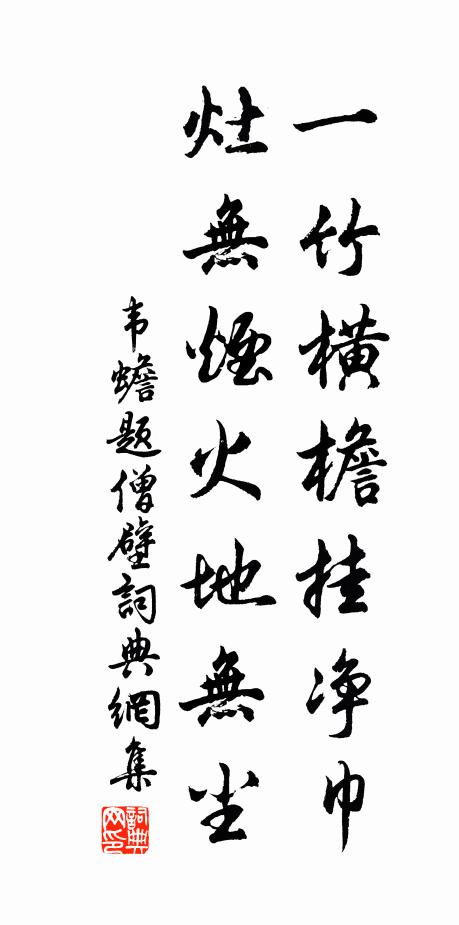 一竹橫檐挂净巾
灶無煙火地無尘
韦蟾题僧壁詞典網集
詞典网印